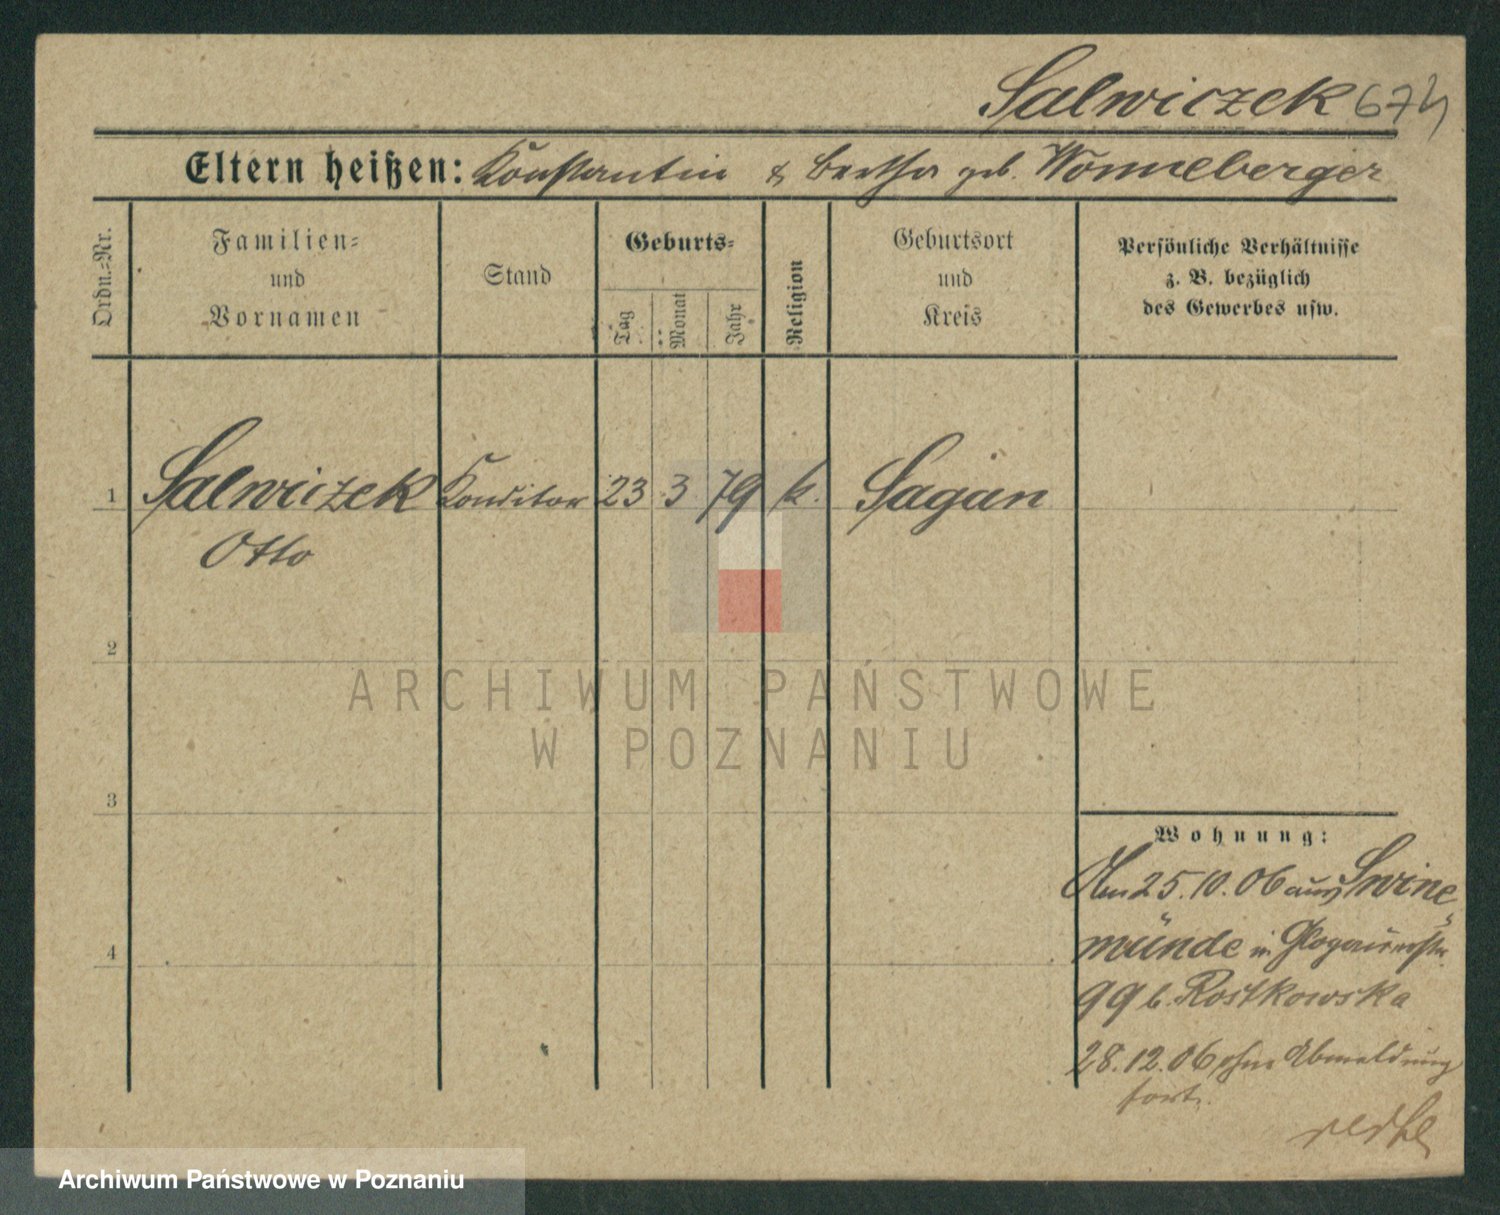 Salwiczek 674
Eltern heißen: Konstantin & Bertha geb. Wonneberger
Ordn.=Nr.
Familien=
und
Vornamen
Stand
Geburts=
Tag
Monat
Jahr
Religion
Geburtsort
und
Kreis
Persönliche Verhältnisse
z. B. bezüglich
des Gewerbes usw.
1 Salwiczek Konditor 23 3 79 k. Sagan
Otto
2
3
4
ARCHIWUM PAŃSTWOWE
W POZNANIU
Wohnung:
Am 25.10.06 aus Swine
münde in Glogauerstr.
99 b. Rostkowska
28.12.06 ohne Abmeldung
fort.
Archiwum Państwowe w Poznaniu